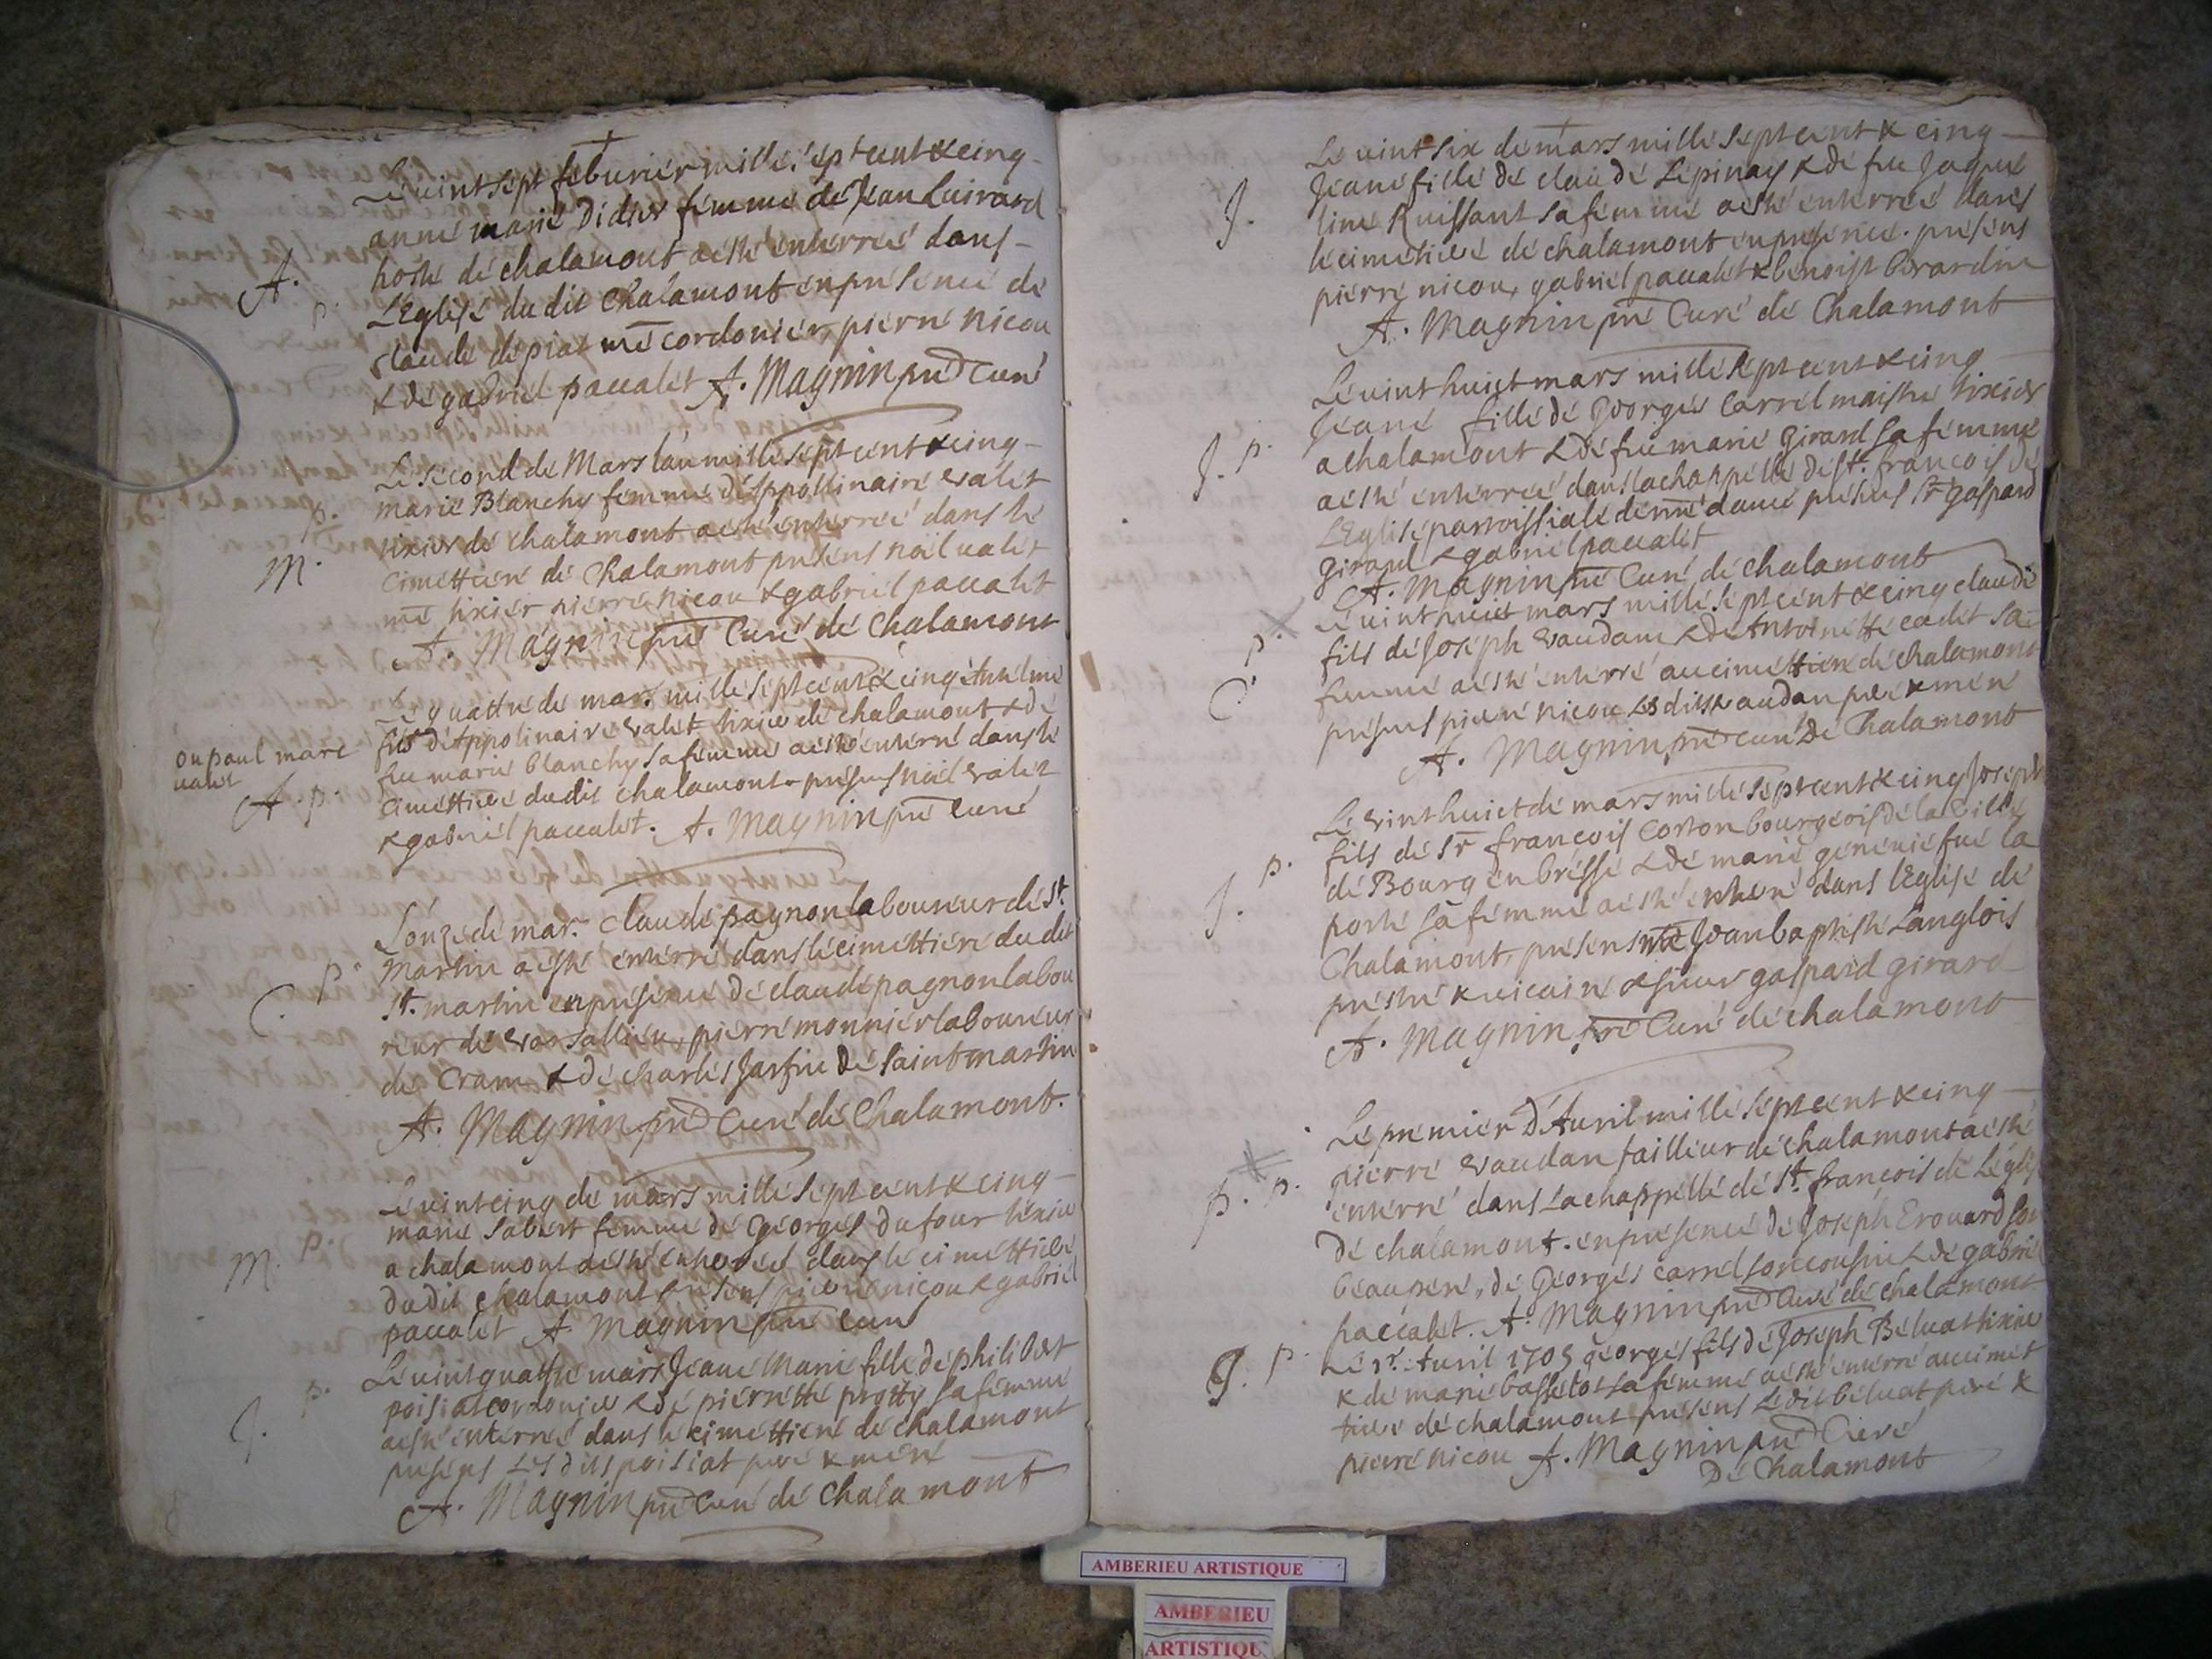 Le vint sept feburier mille sept cent & cinq
anne marie Didier femme de Jean Luirard
A.
hoste de chalamont a esté enterreé dans
p.
L'Eglise du dit Chalamont en presence de
claude depiat me cordonier, pierre nicou
& de gabriel paccalet A. Magnin pre Curé
Le second de Mars l'an mille sept cent & cinq
marie Blanchy femme d'Appollinaire valet
p.
tixier de chalamont a esté enterreé dans le
M.
Cimettiere de Chalamont presens noël valet
me tixier pierre nicou & gabriel paccalet
A. Magnin pre Curé de Chalamont
Le quattre de mars mille sept cent & cinq Anthelme
fils d'Appolinaire valet tixier de chalamont & de
ou paul marc
valet
feu marie blanchy sa femme a esté enterré dans le
A. p.
cimettiere dudit chalamont presens noël valet
& gabriel paccalet. A. Magnin pre curé
L'onze de mars Claude pagnon laboureur de St.
p.
martin a esté enterré dans le cimettiere du dit
C.
St. martin en presence de claude pagnon labou
reur de Versallieu, pierre monnier laboureur
de Crans & de charles Jarfin de Saint martin
A. Magnin pre Curé de Chalamont.
Le vint cinq de mars mille sept cent & cinq
marie Sabert femme de Georges dufour tixier
M. p.
a chalamont a esté enterreé dans le cimettiere
dudit chalamont presens pierre nicou & gabriel
paccalet A. Magnin pre Curé
Le vint quattre mars Jeane Marie fille de philibert
p.
poisiat cordonier & de pierrette protty sa femme
J.
a esté enterreé dans le cimettiere de chalamont
presens les dits poisiat pere & mere
A. Magnin pre Curé de Chalamont
Le vint six de mars mille sept cent & cinq
Jeane fille de claude Lépinay & de feu Jaque
J.
line Ruissant sa femme a esté enterreé dans
le cimetiere de chalamont en presence. presens
pierre nicou, gabriel paccalet & benoist berardin
A. Magnin pre Curé de Chalamont
Le vint huict mars mille sept cent & cinq
Jeane fille de Georges Carrel maistre tixier
J. p.
a chalamont & de feu marie Girard sa femme
a esté enterreé dans la chappelle de St. francois de
L'Eglise parroissiale de presens Sr gaspard
girard & gabriel paccalet
A. Magnin pre Curé de chalamont
Le vint huict mars mille sept cent & cinq claude
p.
fils de Joseph vaudan & de Antoinette cadet sa
C.
femme a esté enterré au cimettiere de chalamont
presens pierre nicou Les dits vaudan pere & mere
A. Magnin pre curé De Chalamont
Le vint huict de mars mille sept cent & cinq Joseph
fils de Sr francois Corton bourgeois de la ville
p.
de Bourg en bresse & de marie la
J.
porte sa femme a esté enterré dans l'Eglise de
Chalamont, presens mre Jean baptiste Langlois
prestre & vicaire & sieur gaspard girard
A. Magnin pre Curé de chalamont
Le premier d'Auril mille sept cent & cinq
pierre vaudan tailleur de chalamont a esté
p. p.
enterré dans la chappelle de St. francois de L'églis
De chalamont. en presence de Joseph Erouard son
beaupere, de Georges carrel son cousin & de gabriel
paccalet. A. Magnin pre Curé de chalamont
G. p.
Le 1r. Auril 1705 georges fils de Joseph Beluat tixier
& de marie bassetot sa femme a esté enterré au cimet
tiere de chalamont presens Ledit beluat pere &
pierre nicou A. Magnin pre Curé
De Chalamont
AMBERIEU ARTISTIQUE
AMBERIEU
ARTISTIQU